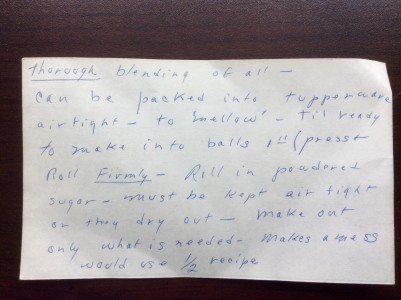 Thorough blending of all -
Can be packed into tupperware
airtight - to "mellow" - Til ready
to make into balls 1" (press
Roll Firmly - Roll in powdered
sugar - must be kept air tight
or they dry out - make out
only what is needed - Makes a mess
would use 1/2 recipe